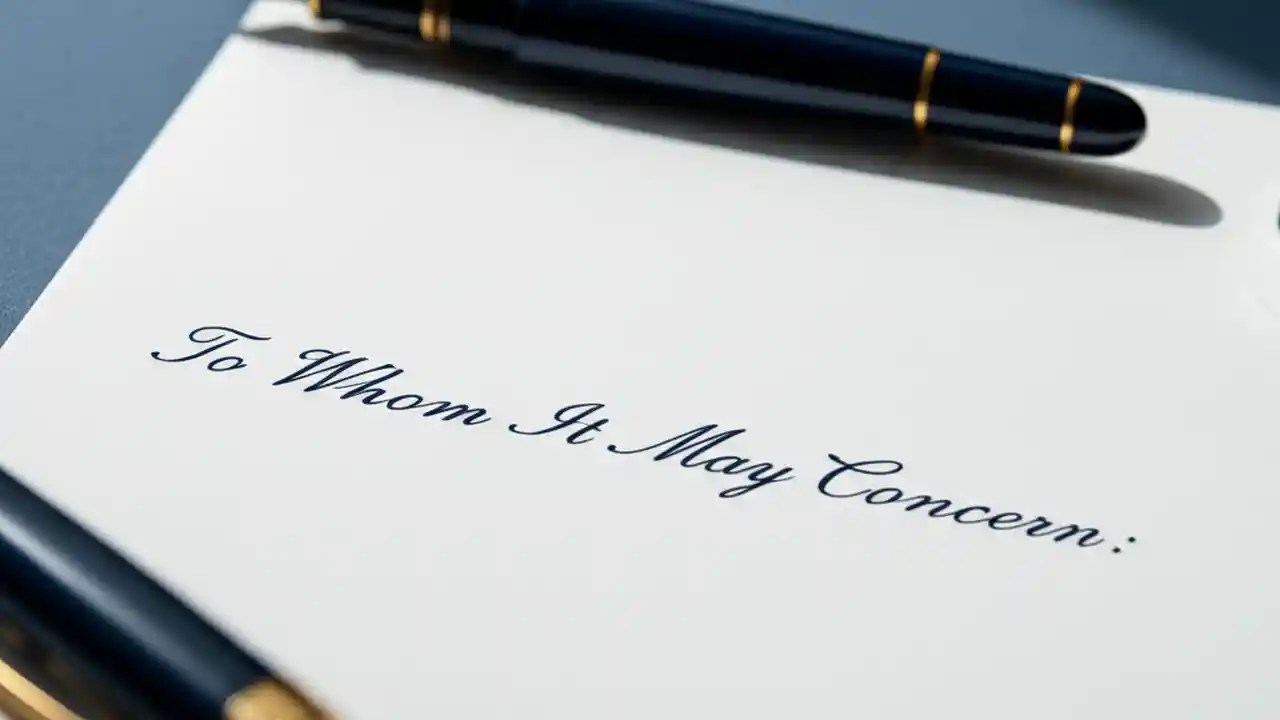 To Whom It May Concern: